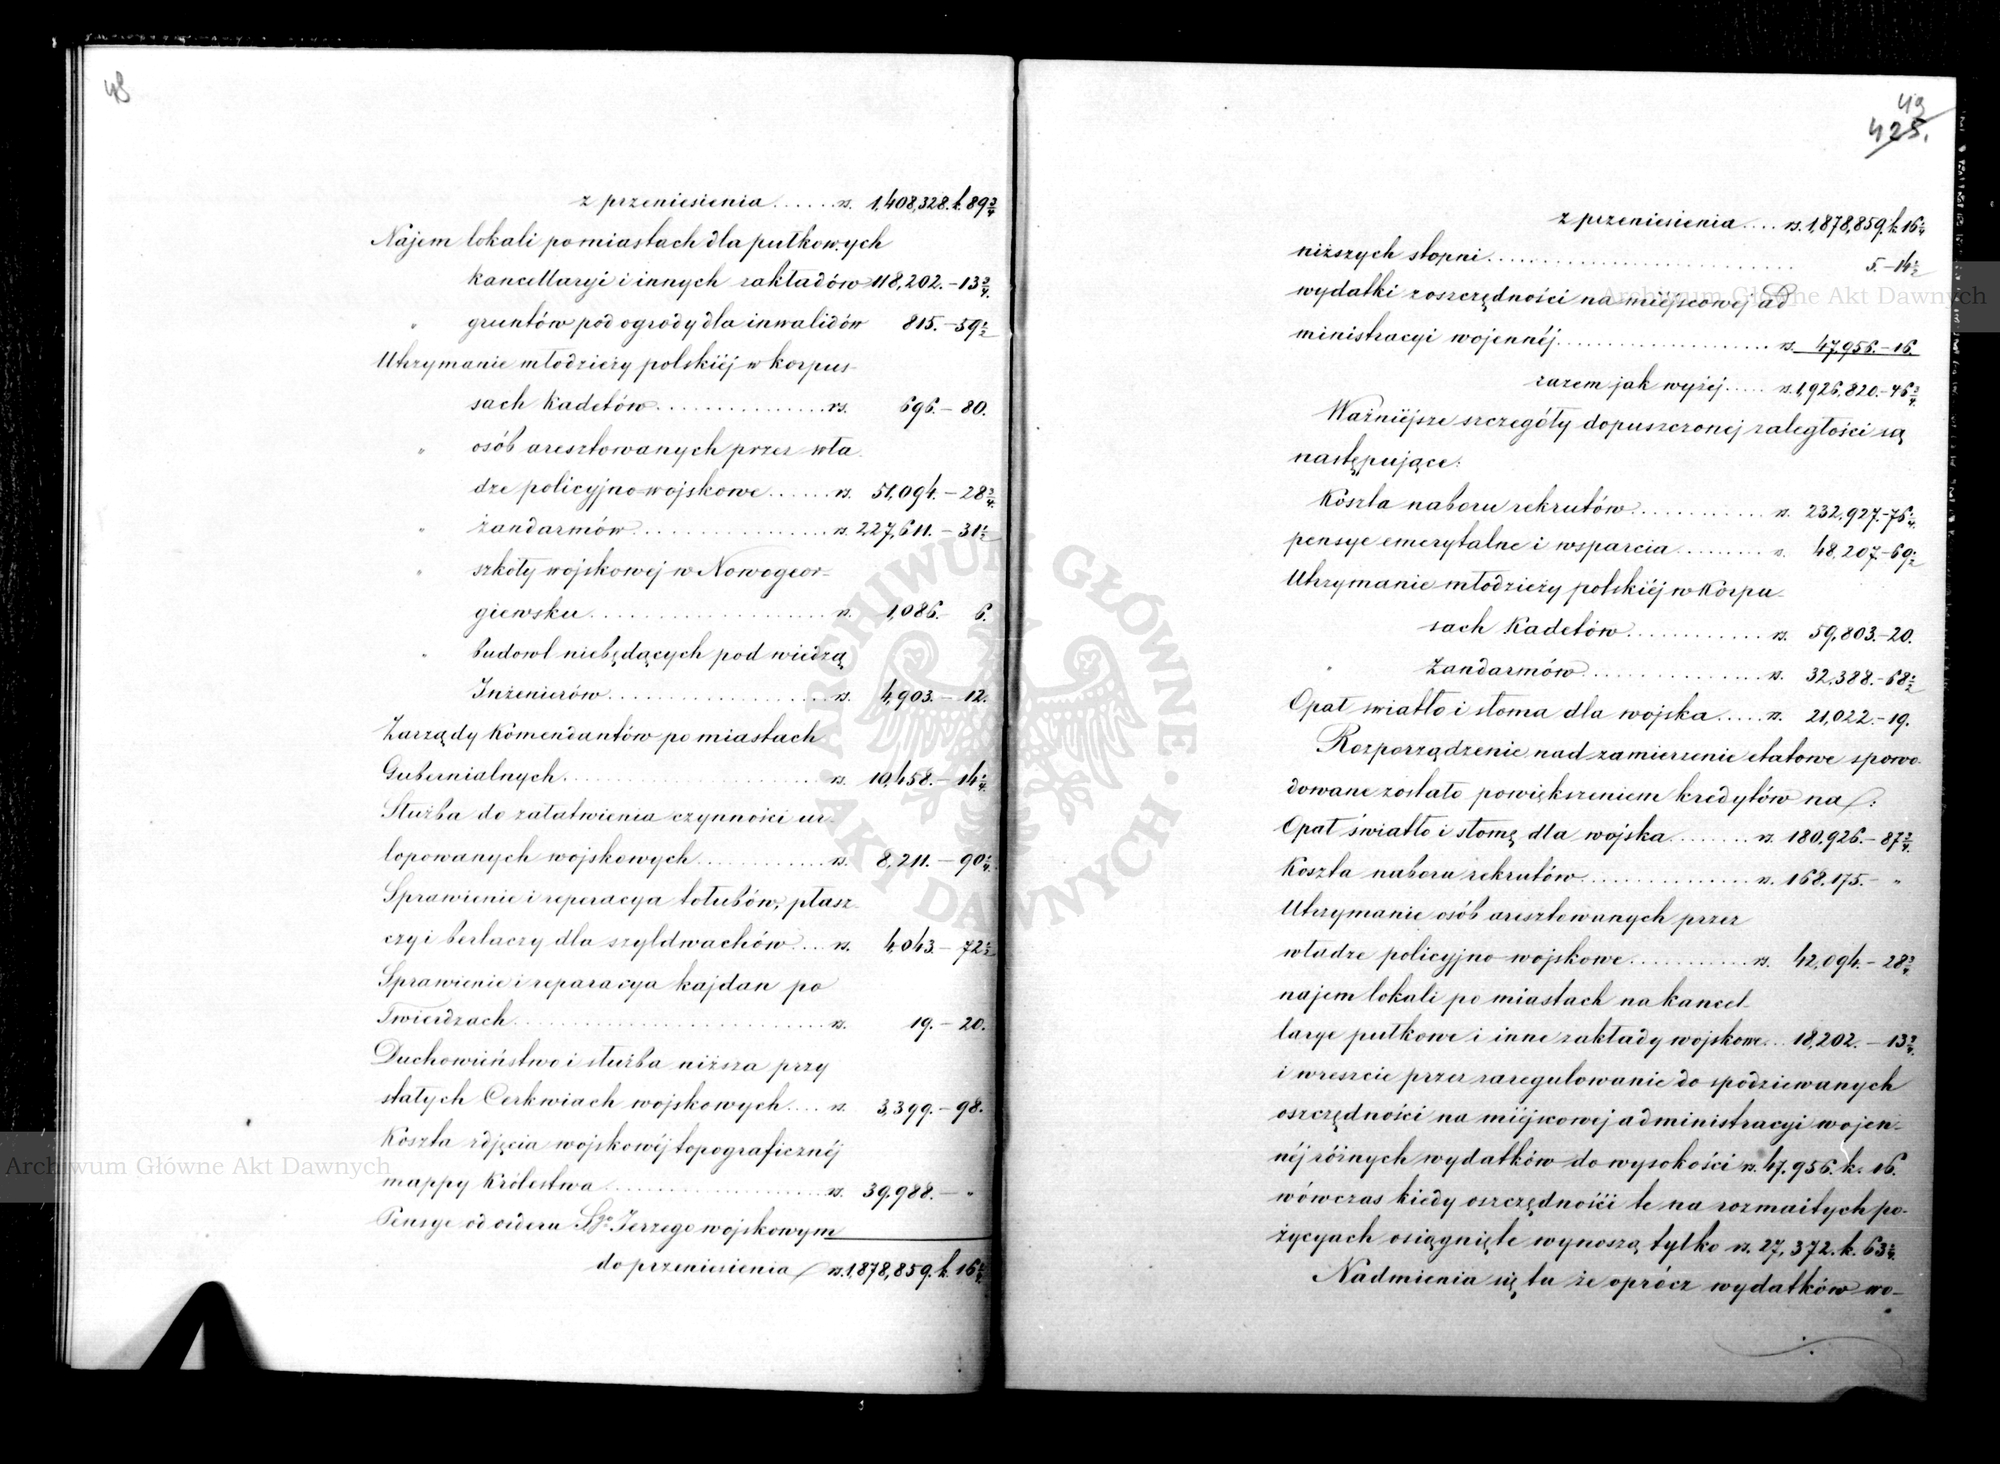 48
z przeniesienia ...... rs. 1,408,328. k. 89 3/4
Najem lokali po miastach dla pułkowych
kancellaryi i innych zakładów 118,202. – 13 3/4.
" gruntów pod ogrody dla inwalidów 815. – 59 1/2
Utrzymanie młodzieży polskiéj w korpus-
sach Kadetów ................ rs. 696. – 80.
" osób aresztowanych przez wła-
dze policyjno-wojskowe ...... rs. 51,094. – 28 3/4.
" żandarmów ................ rs. 227,611. – 31 1/2
" szkoły wojskowej w Nowogeor-
giewsku ...................... rs. 1,086. – 6.
" budowl niebędących pod wiedzą
Inżenierów ................... rs. 4,903. – 12.
Zarządy Komendantów po miastach
Gubernialnych ................ rs. 10,458. – 14 1/4.
Służba do załatwienia czynności ur-
lopowanych wojskowych ........ rs. 8,211. – 90 1/4.
Sprawienie i reperacya tołubów, płasz-
czy i berlaczy dla szyldwachów ... rs. 4,043. – 72 1/2
Sprawienie i reparacya kajdan po
Twierdzach ................... rs. 19. – 20.
Duchowieństwo i służba niższa przy
stałych Cerkwiach wojskowych .... rs. 3,399. – 98.
Koszta zdjęcia wojskowéj topograficznéj
mappy Królestwa .............. rs. 39,988. – "
Pensye od orderu Sgo Jerzego wojskowym
do przeniesienia rs. 1,878,859. k. 16 1/4
49
425.
z przeniesienia .... rs. 1,878,859. k. 16 1/4
niższych stopni .............. 5. – 14 1/2
wydatki z oszczędności na miejscowej ad-
ministracyi wojennéj ......... rs. 47,956. – 16.
razem jak wyżej ..... rs. 1,926,820. – 46 3/4.
Ważniejsze szczegóły dopuszczonej zaległości są
następujące:
Koszta naboru rekrutów ....... rs. 232,927. – 76 1/4.
pensye emerytalne i wsparcia ... rs. 48,207. – 69 1/2
Utrzymanie młodzieży polskiéj w Korpu-
sach Kadetów ................. rs. 59,803. – 20.
" Żandarmów .................. rs. 32,388. – 68 1/2
Opał światło i słoma dla wojska ..... rs. 21,022. – 19.
Rozporządzenie nad zamierzenie etatowe spowo-
dowane zostało powiększeniem kredytów na:
Opał światło i słomę dla wojska ....... rs. 180,926. – 87 3/4.
Koszta naboru rekrutów ....... rs. 168,175. – "
Utrzymanie osób aresztowanych przez
władze policyjno wojskowe .... rs. 42,094. – 28 3/4
najem lokali po miastach na kancel-
larye pułkowe i inne zakłady wojskowe .. 18,202. – 13 3/4.
i wreszcie przez zaregulowanie do spodziewanych
oszczędności na miejscowej administracyi wojen-
néj różnych wydatków do wysokości rs. 47,956. k. 16.
wówczas kiedy oszczędności te na rozmaitych po-
życyach osiągnięte wynoszą tylko rs. 27,372. k. 63 1/4.
Nadmienia się tu że oprócz wydatków wo-
ARCHIWUM GŁÓWNE AKT DAWNYCH
Archiwum Główne Akt Dawnych
Archiwum Główne Akt Dawnych